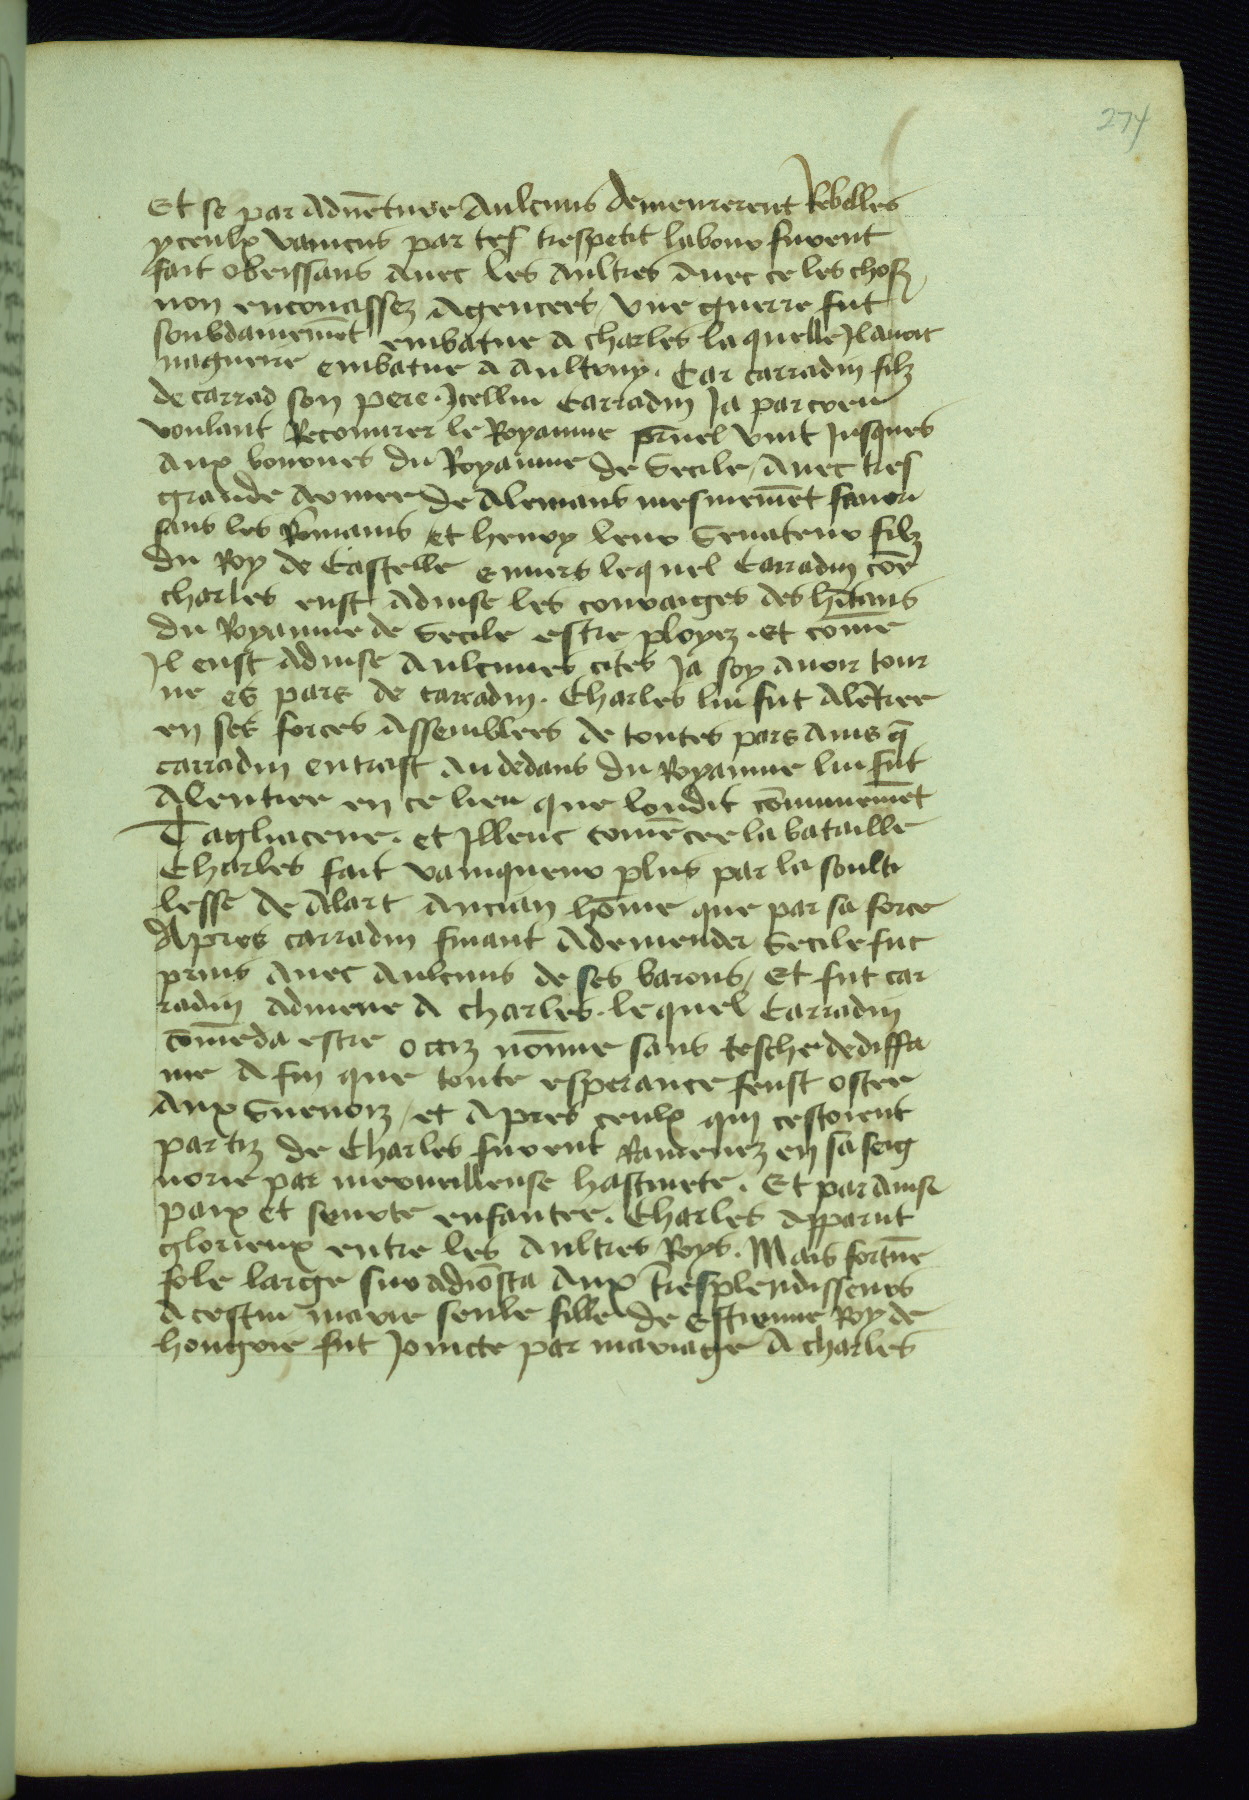 274
Et se par adue̅ture aulcuns demeurerent Rebelles
yceulx vaincus par tres trespetit labour furent
fait obeissans auec les aultres auec ce les choses
non encor assez agencees vne guerre fut
soubdaineme̅t embatue a charles laquelle Jl auoit
naguerre embatue a aultruy. Car carradin filz
de carrad son pere. Jcellui Carradin Ja par creu
voulant Recouurer le Royaume p̅rnel vint Jusques
aux bornes du Royaume de Secile / auec tres
grande armee de alemans mesmeme̅t fauori
sans les Romains et henry leur Senateur filz
du Roy de Castelle enuers lequel Carradin co̅e
charles eust aduise les couraiges des h̅itans
du Royaume de Secile estre ployez. et co̅me
Jl eust aduise aulcunes cites Ja soy auoir tour
ne es pars de carradin. Charles lui fut ale̅tree
en ses forces assemblees de toutes pars ains q̅
carradin entrast au dedans du Royaume lui fut
alentree en ce lieu que londit co̅muneme̅t
Tagliacene. et Jlleuc come̅cee la bataille
Charles fait vainqueur plus par la soulti
lesse de Alart ancian ho̅me que par sa force
Apres carradin fuiant ademender Secile fut
prins auec aulcuns de ses barons / Et fut car
radin admene a charles. lequel Carradin
co̅me̅da estre occiz no̅mie sans tesche dediffa
me a fin que toute esperance feust ostee
aux Sueuois / et apres ceulx qui cestoient
partiz de Charles furent Ramenez en sa seig
norie par merueilleuse hastiuete. Et par ainsi
paix et seurte enfantee. Charles apparut
glorieux entre les aultres Roys. Mais fortu̅e
fole large suradio̅sta aux tresplendisseurs
a cestui marie seule fille de estienne Roy de
hongrie fut Joincte par mariage a charles